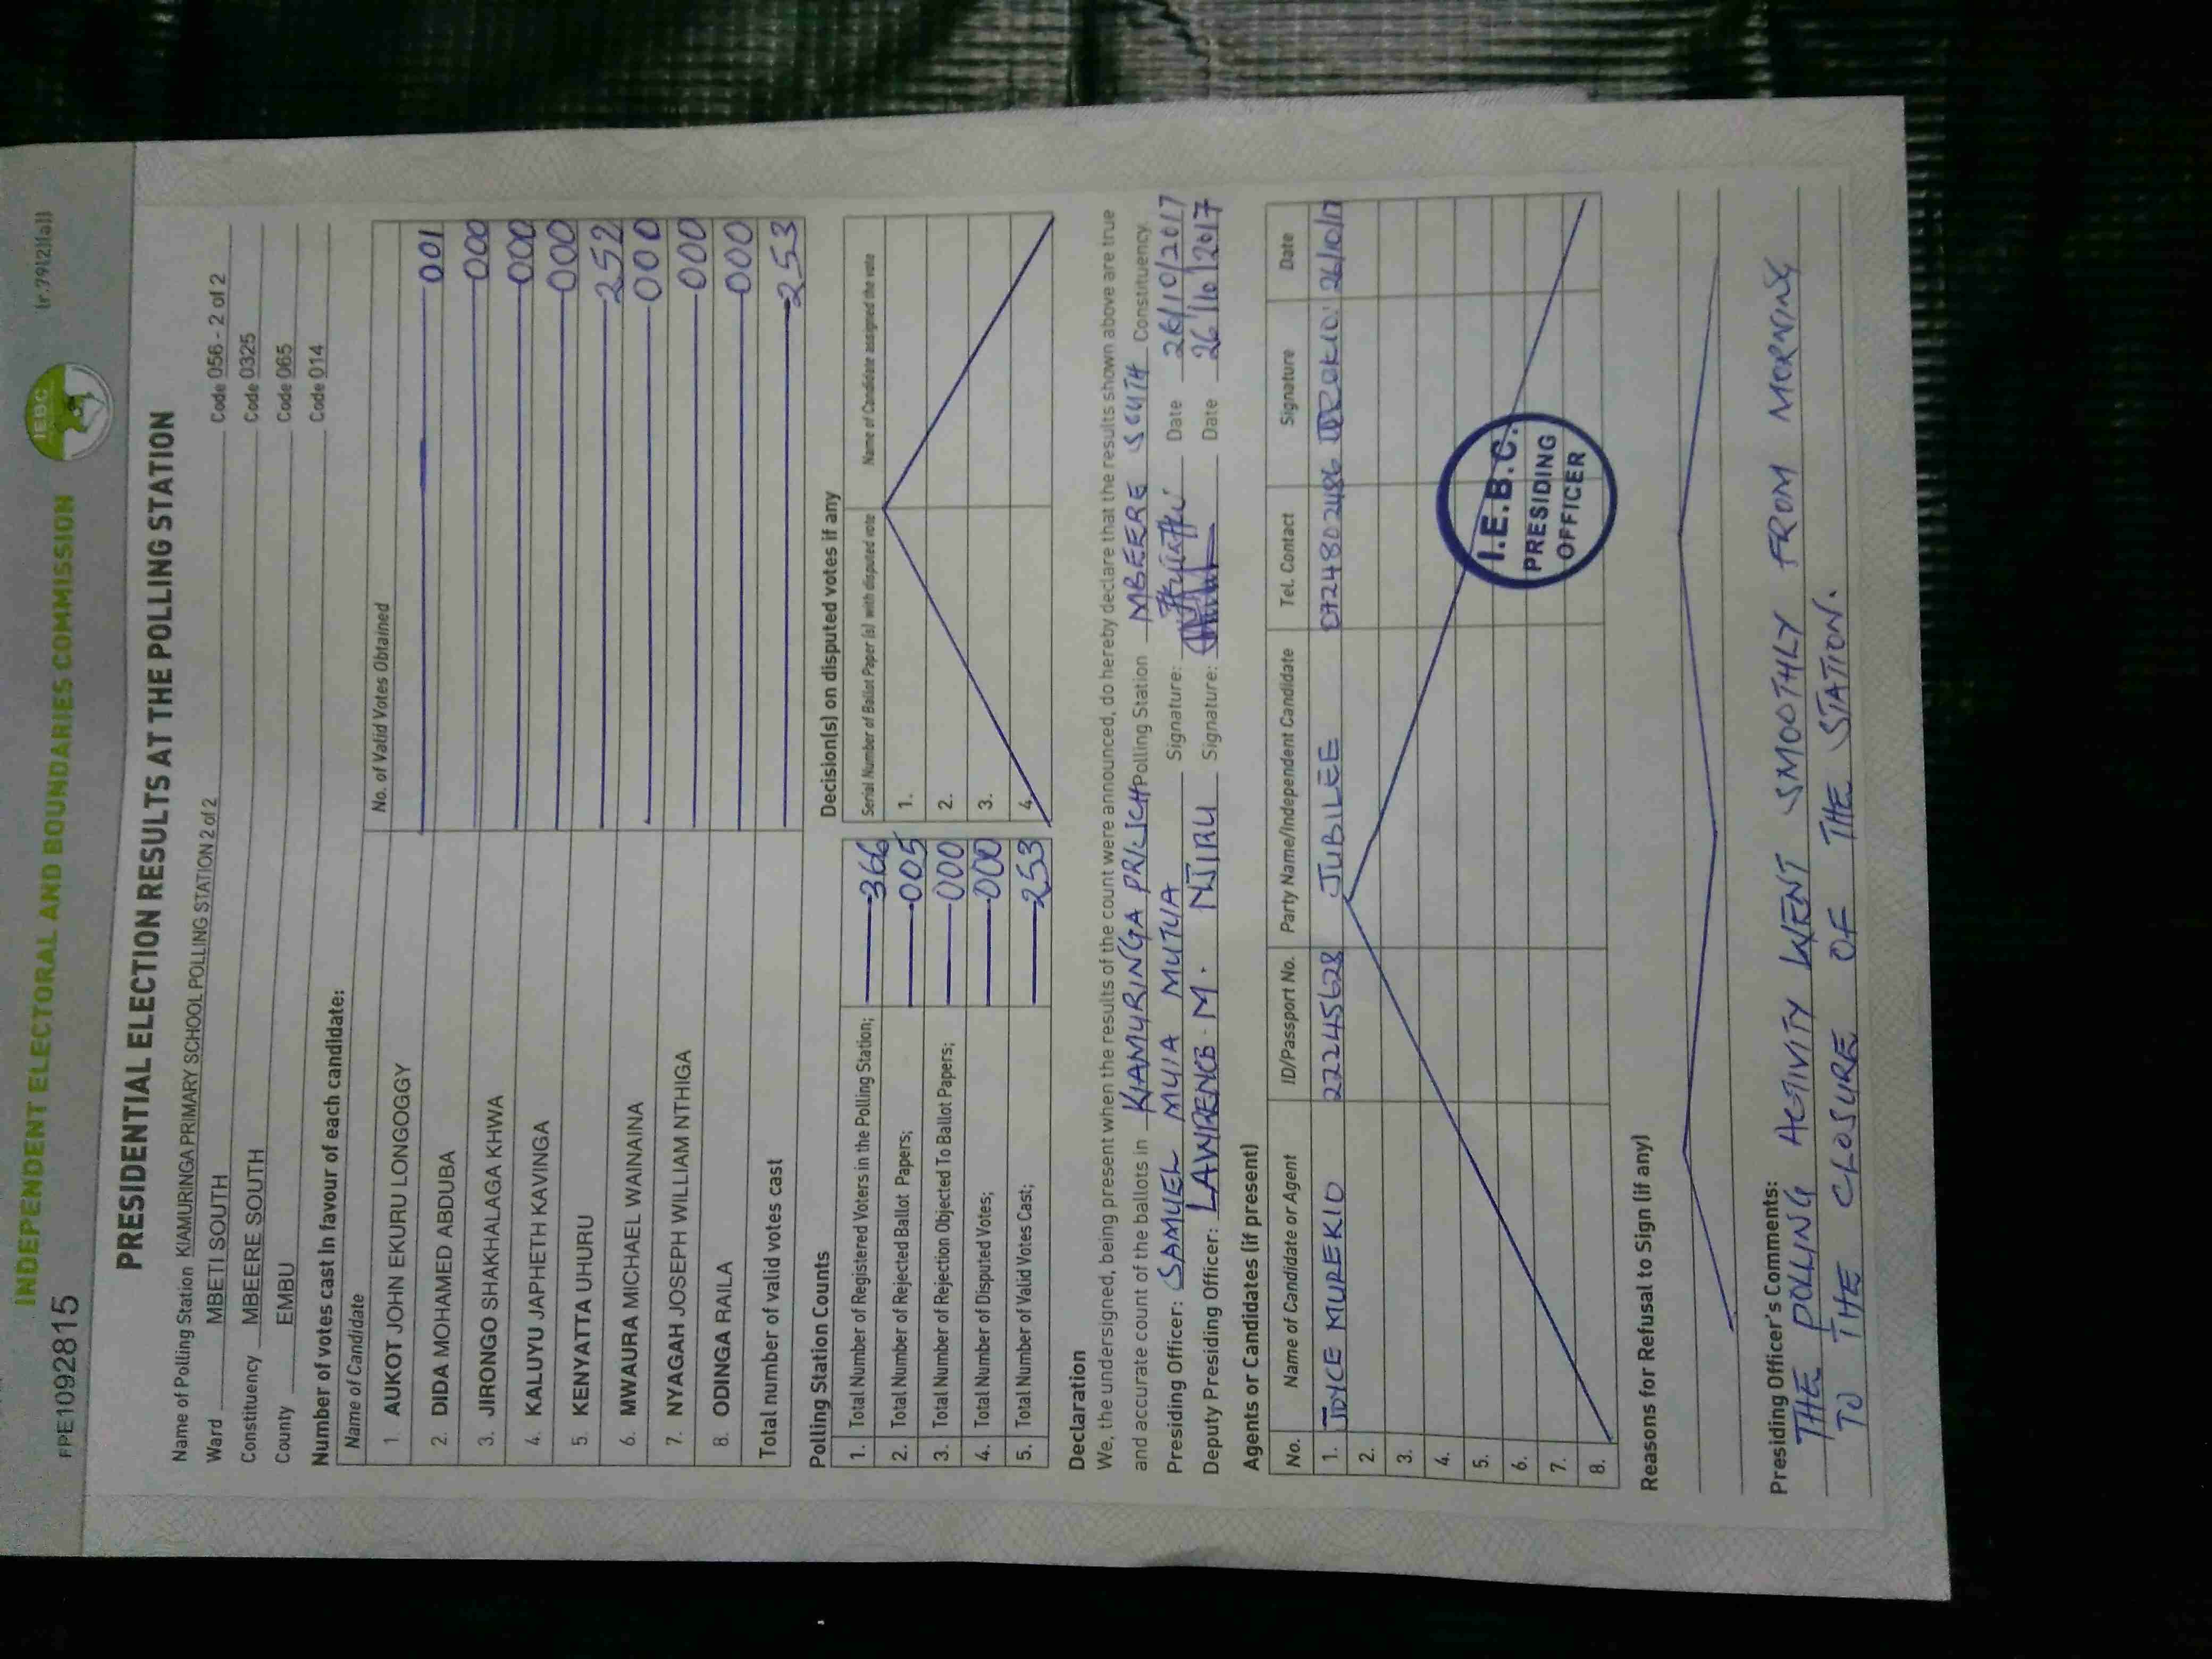 INDEPENDENT ELECTORAL AND BOUNDARIES COMMISSION
IEBC
(r.79(2)(a))
PPE1092815
PRESIDENTIAL ELECTION RESULTS AT THE POLLING STATION
Name of Polling Station KIAMURINGA PRIMARY SCHOOL POLLING STATION 2 of 2 Code 056 - 2 of 2
Ward MBETI SOUTH Code 0325
Constituency MBEERE SOUTH Code 065
County EMBU Code 014
Number of votes cast in favour of each candidate:
Name of Candidate No. of Valid Votes Obtained
1 AUKOT JOHN EKURU LONGOGGY 001
2. DIDA MOHAMED ABDUBA 000
3. JIRONGO SHAKHALAGA KHWA 000
4. KALUYU JAPHETH KAVINGA 000
5. KENYATTA UHURU 252
6. MWAURA MICHAEL WAINAINA 000
7. NYAGAH JOSEPH WILLIAM NTHIGA 000
8. ODINGA RAILA 000
Total number of valid votes cast 253
Polling Station Counts
1. Total Number of Registered Voters in the Polling Station; 366
2. Total Number of Rejected Ballot Papers; 005
3. Total Number of Rejection Objected To Ballot Papers; 000
4. Total Number of Disputed Votes; 000
5. Total Number of Valid Votes Cast; 253
Decision(s) on disputed votes if any
Serial Number of Ballot Paper (s) with disputed vote Name of Candidate assigned the vote
1.
2.
3.
4.
Declaration
We, the undersigned, being present when the results of the count were announced, do hereby declare that the results shown above are true
and accurate count of the ballots in KIAMURINGA PRI SCH Polling Station MBEERE SOUTH Constituency.
Presiding Officer: SAMUEL MUIA MUTUA Signature: Date 26/10/2017
Deputy Presiding Officer: LAWRENCE M. NJIRU Signature: Date 26/10/2017
Agents or Candidates (if present)
No. Name of Candidate or Agent ID/Passport No. Party Name/Independent Candidate Tel. Contact Signature Date
1. JOYCE MUREKIO 22245628 JUBILEE 0724802486 26/10/17
2.
3.
4.
5.
6.
7.
8.
I.E.B.C.
PRESIDING
OFFICER
Reasons for Refusal to Sign (if any)
Presiding Officer's Comments:
THE POLLING ACTIVITY WENT SMOOTHLY FROM MORNING
TO THE CLOSURE OF THE STATION.